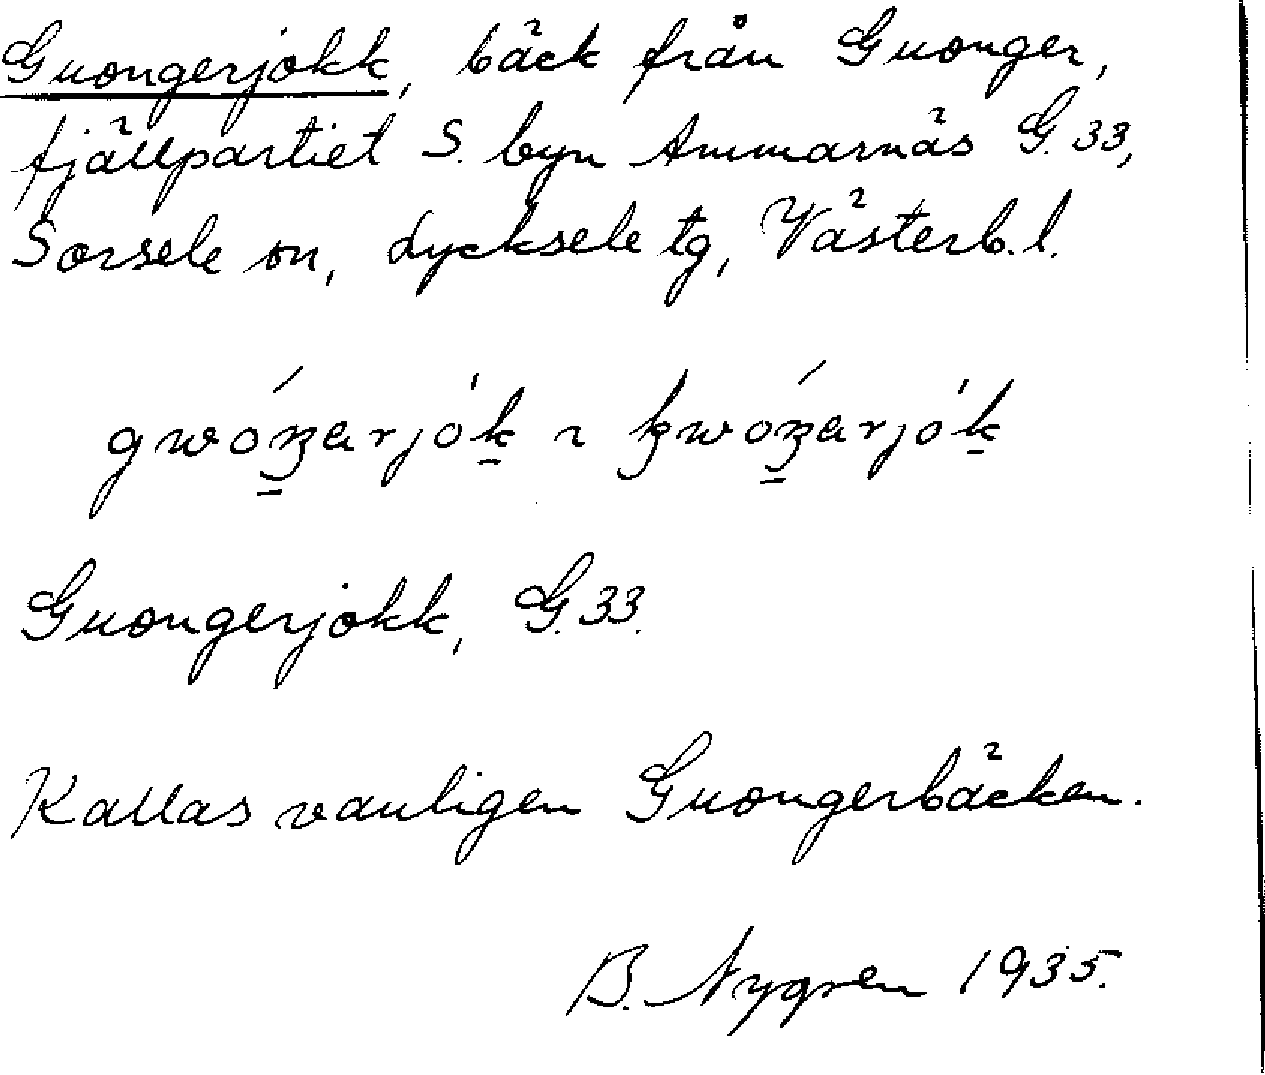 Guongerjokk, bäck från Guonger,
fjällpartiet S. byn Ammarnäs G. 33,
Sorsele sn, Lycksele tg, Västerb. l.
Guongerjokk, G. 33.
Kallas vanligen Guongerbäcken.
B. Nygren 1935.